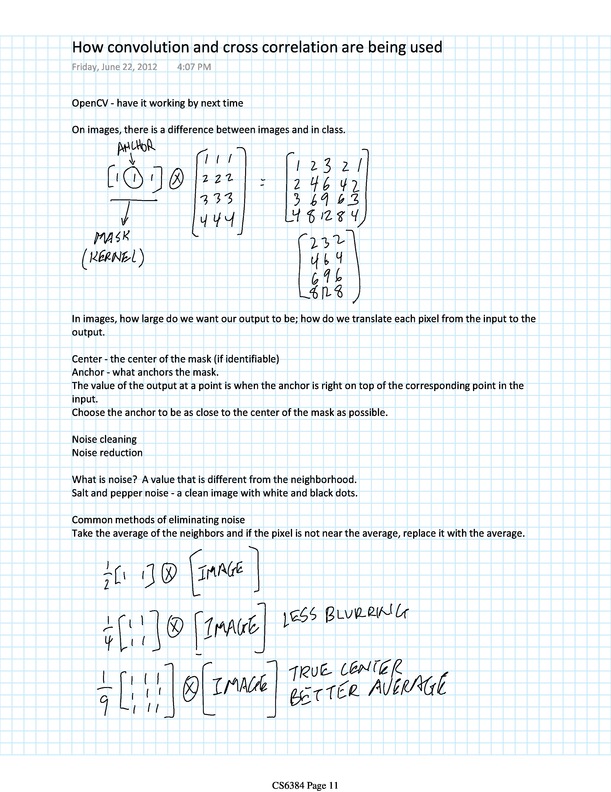 How convolution and cross correlation are being used
Friday, June 22, 2012 4:07 PM
OpenCV - have it working by next time
On images, there is a difference between images and in class.
ANCHOR
[1 1 1] ⊗ [1 1 1 = [1 2 3 2 1
2 2 2 2 4 6 4 2
3 3 3 3 6 9 6 3
4 4 4] 4 8 12 8 4]
MASK
(KERNEL)
[2 3 2
4 6 4
6 9 6
8 12 8]
In images, how large do we want our output to be; how do we translate each pixel from the input to the
output.
Center - the center of the mask (if identifiable)
Anchor - what anchors the mask.
The value of the output at a point is when the anchor is right on top of the corresponding point in the
input.
Choose the anchor to be as close to the center of the mask as possible.
Noise cleaning
Noise reduction
What is noise? A value that is different from the neighborhood.
Salt and pepper noise - a clean image with white and black dots.
Common methods of eliminating noise
Take the average of the neighbors and if the pixel is not near the average, replace it with the average.
1/2 [1 1] ⊗ [IMAGE]
1/4 [1 1
1 1] ⊗ [IMAGE] LESS BLURRING
1/9 [1 1 1
1 1 1
1 1 1] ⊗ [IMAGE] TRUE CENTER
BETTER AVERAGE
CS6384 Page 11